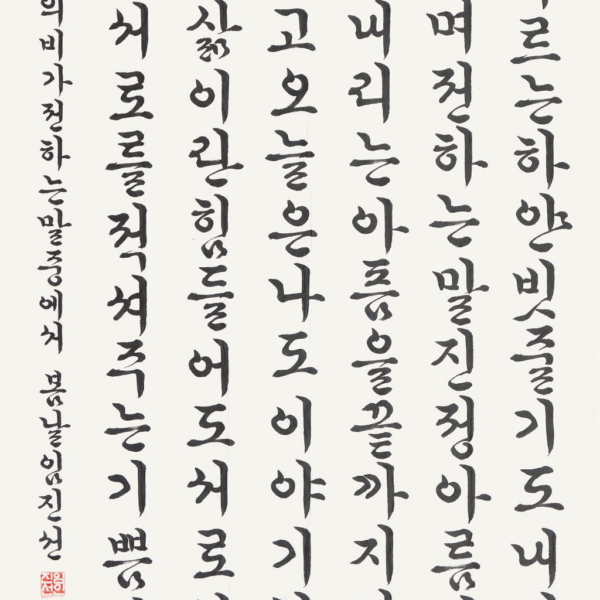 르는하얀빗줄기도내
며전하는말진정아름
내리는아픔을끝까지
고오늘은나도이야기
삶이란힘들어도서로
서로를적셔주는기쁨
의비가전하는말중에서 봄날임진선